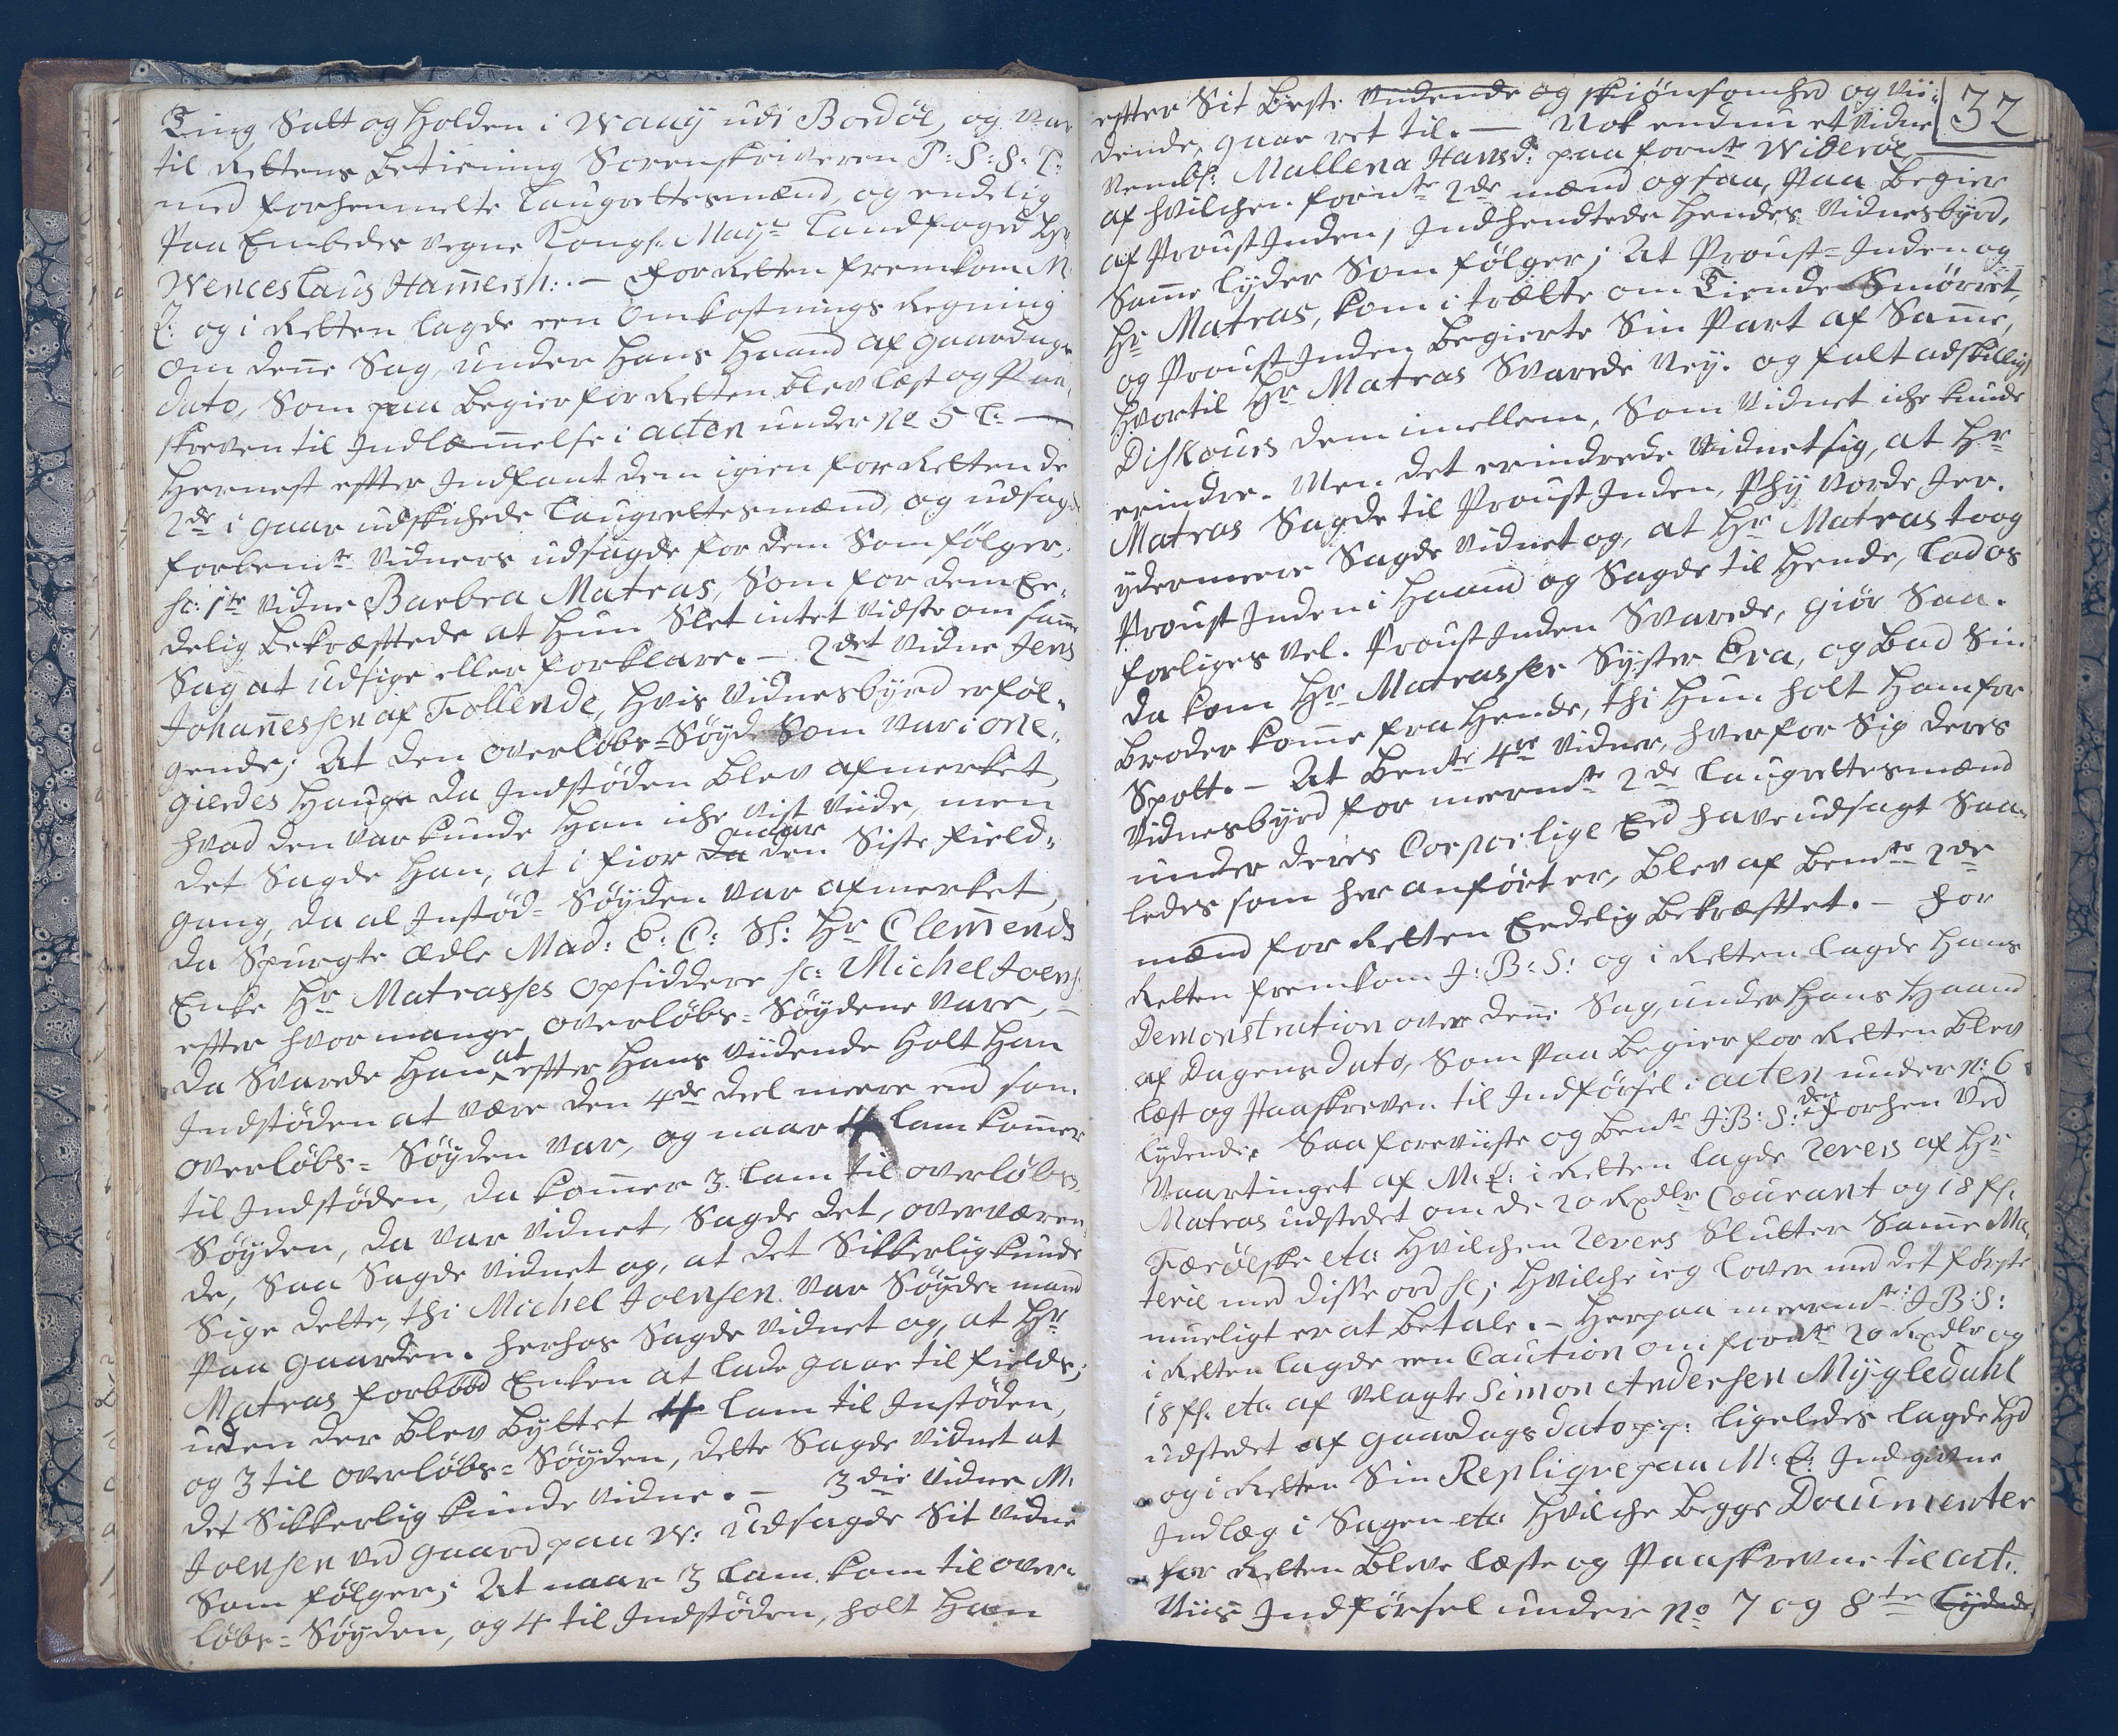 Ting Satt og Holden i Waaÿ udi Bordøe, og var
til Rettens Betiening Sorenskriveren P: S: S: T:
med forhenmelte Laugrettesmænd, og endelig
Paa Embeder vegne Kongl: Mayts Landfoged Hr
Wenceslaus Ham̄ersh:. — For Retten fremkom M:
E: og i Retten lagde een Omkostnings Regning
om den̄e Sag, under Hans Haand af Gaardags
dato, Som paa Begier for Retten blev læst og Paa-
skreven til Indlæm̄elsse i acten under No 5 L: —
Hernest effter Indfant dem igien for Retten de
2de i gaar udskichede Laugrettesmænd, og udsagde
forbemte Vidners udsagde for dem Som følger,
sc: 1te Vidne Barbra Matras, Som for dem Ee-
delig bekræfttede at Hun Slet intet Vidste om sam̄e
Sag at udsige eller forklare. — 2det Vidne Jens
Johan̄essen af Tollende, Hvis Vidnesbÿrd er føl-
gende; At den overløbs=Søyd Som var i One-
gierdes Hauge da Indstøden blev afmerket,
hvad den var kunde Han iche vist Viide, men
det Sagde Han, at i fior da onder den Siste field-
gang, da al Instød= Søyden var afmerket,
da Spurgte Ædle Mad: C: C: Sl: Hr Clem̄ends
Enke Hr Matrasses opsiddere sc: Michel Joens:
effter hvor mange overløbs=Søydene vare, —
da Svarede Han at effter Hans Viidende Holt Han
Indstøden at være den 4de deel meere end som
overløbs= Søyden var, og naar 4 Lam kom̄er
til Indstøden, da kom̄er 3 Lam til overløbs-
Søyden, da var Vidnet, Sagde det, overværen-
de, Saa Sagde Vidnet og, at det Sikkerlig kunde
Sige dette, thi Michel Joensen var Søyde=mand
Paa gaarden. herhos Sagde Vidnet og, at Hr
Matras forbød Enken at lade gaae til fields;
uden der blev byttet 4 Lam til Instøden,
og 3 til overløbs= Søyden, dette Sagde Vidnet at
det Sikkerlig kunde Vidne. — 3die Vidne M:
Joensen ved gaard paa W: udsagde Sit Vidne
Som følger; At naar 3 Lam kom til over-
løbs= Søyden, og 4 til Indstøden, holt Han
32
effter Sit beste Vidende og skiønsomhed og Vii-
dende, gaar ret til. — Nok endnu et Vidne
Nembl: Mallena Hansd: paa fornte Wiiderøe —
af hvilchen fornte 2de mænd ogsaa, Paa Begier
af Proustinden, Indhendtede Hendes Vidnesbyrd,
Sam̄e Lyder Som følger; At Proust=Inden og
Hr Matras, kom i trætte om Tiende Smørret,
og ProustInden begierte Sin Part af Sam̄e,
Hvortil Hr Matras Svarede Ney. og falt adskillig
Diskours dem imellem, Som Vidnet iche kunde
erindre. Men det erindrede Vidnet sig, at Hr
Matras Sagde til ProustInden, Phÿ vorde Jer.
ydermeere Sagde Vidnet og, at Hr Matras toog
ProustInden i Haand og Sagde til Hende, Lad os
forliges vel. ProustInden Svarede, giør Saa.
da kom Hr Matrasses Syster Eva, og bad Sin
broder kom̄e fra Hende, thi Hun holt Ham for
Spott. — At bente 4re Vidner, hver for Sig deres
Vidnesbyrd for meermte 2de Laugrettesmænd
under deres Corporlige Eed have udsagt Saa-
ledes som her anført er, blev af bemte 2de
mænd for Retten Eedelig bekræfttet. — For
Retten fremkom J: B: S: og i Retten lagde Hans
Demonstration over den̄e Sag, under Hans Haand
af Dagens Dato, Som Paa begier for Retten blev
læst og Paaskreven til Indførsel i acten under No: 6
lydende. Saa foreviiste og bente J: B: S: den forhen Ved
Vaartinget af M: E: i Retten lagde Revers af Hr
Matras udstedet om de 20 Rxdlr Courant og 18 sh:
Færøiske etc: Hvilchen Revers Slutter Sam̄e Ma-
terie med disse ord sc; Hvilche ieg lover med det første
mueligt er at betale. — Herpaa meermte J: B: S:
i Retten lagde een Caution om fornte 20 Rxdlr og
18 sh: etc: af Velagte Simon Andersen Mÿgledahl
udstedet af Gaardags dato pp: ligeledes lagde Hd
og i Retten Sin Replique paa M: E: Indgivne
Indlæg i Sagen etc: Hvilche begge Documenter
for Retten bleve læste og Paaskrevne til act:
Viis Indførsel under No 7 og 8te Lydende